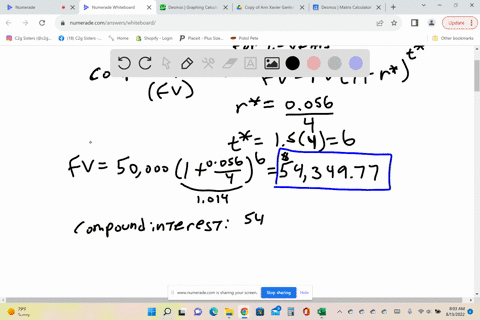 Numerade
Numerade Whiteboard
Desmos | Graphing Calcul
Copy of Ann Xavier Gantert
Desmos | Matrix Calculator
numerade.com/answers/whiteboard/
Update
C2g Sisters (@c2g
(18) C2g Sisters
Home
Shopify
Login
Plus Size Tops - Pl
Potul Pete
t*
(FV)
r* = 0.056
4
t* = 1.5(4) = 6
FV = 50,000 (1 + 0.056/4)^6 = $54,349.77
1.014
compound interest: 54
www.numerade.com is sharing your screen.
Stop sharing
Hide
79°F
Sunny
8:03 AM
8/19/2022